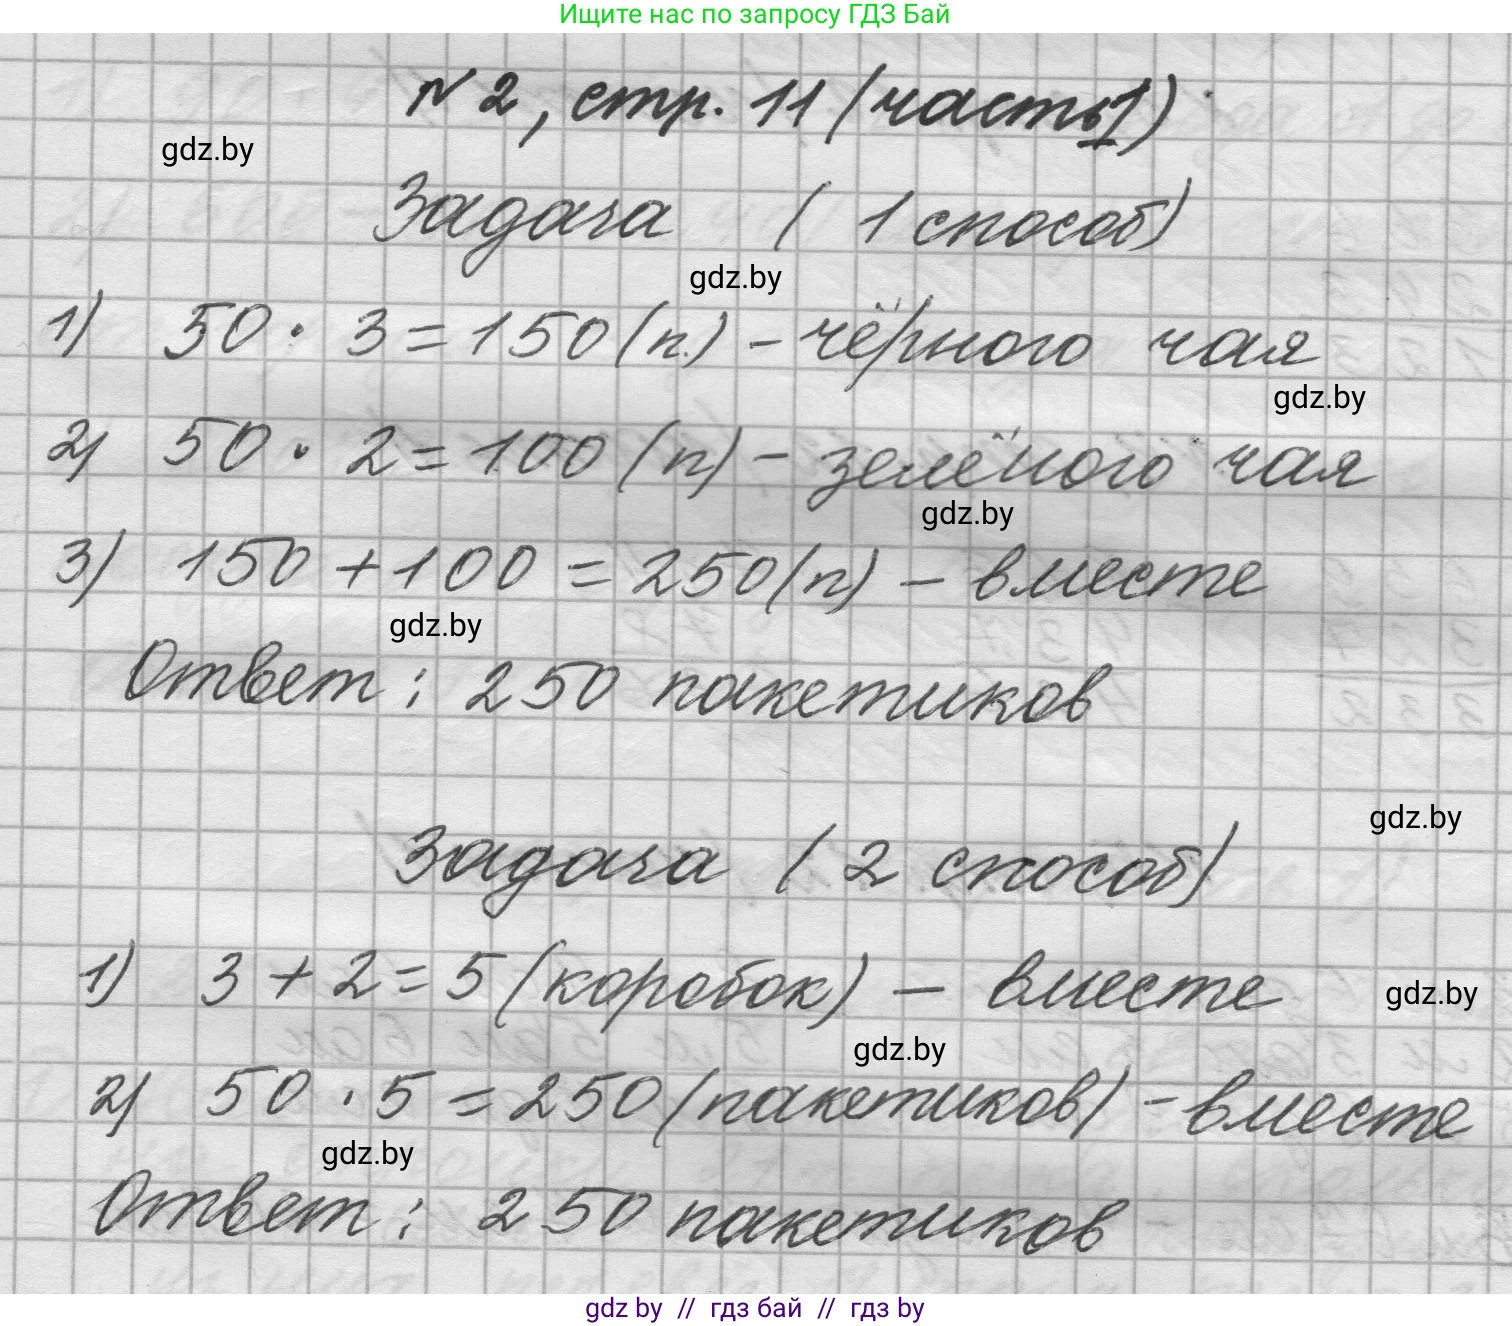 Ищите нас по запросу ГДЗ Бай
№ 2, стр. 11 (часть 1)
gdz.by
Задача ( 1 способ)
gdz.by
1) 50 · 3 = 150 (п.) - чёрного чая
gdz.by
2) 50 · 2 = 100 (п) - зелёного чая
gdz.by
3) 150 + 100 = 250 (п) - вместе
gdz.by
Ответ: 250 пакетиков
gdz.by
Задача ( 2 способ)
1) 3 + 2 = 5 (коробок) - вместе
gdz.by
gdz.by
2) 50 · 5 = 250 (пакетиков) - вместе
gdz.by
Ответ: 250 пакетиков
gdz by // гдз бай // гдз by